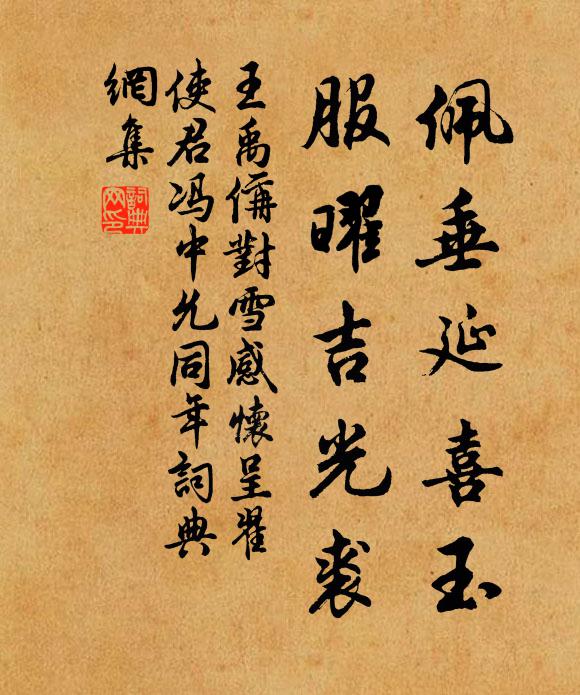 佩垂延喜玉
服曜吉光裘
王禹偁對雪感懷呈翟
使君冯中允同年詞典
網集
詞典
网印